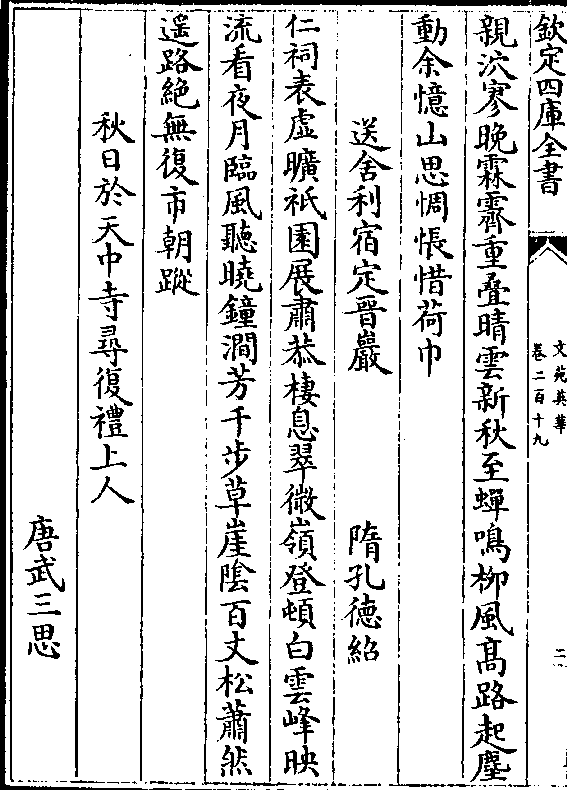 欽定四庫全書
文苑英華
卷二百十九
二
親泬寥晚霖霽重疊晴雲新秋至蟬鳴柳風髙路起塵
動余憶山思惆悵惜荷巾
送舍利宿定晉巖
隋孔徳紹
仁祠表虚曠祇園展肅恭棲息翠微嶺登頓白雲峰映
流看夜月臨風聽曉鐘澗芳千步草崖陰百丈松蕭然
遥路絶無復市朝蹤
秋日於天中寺尋復禮上人
唐武三思